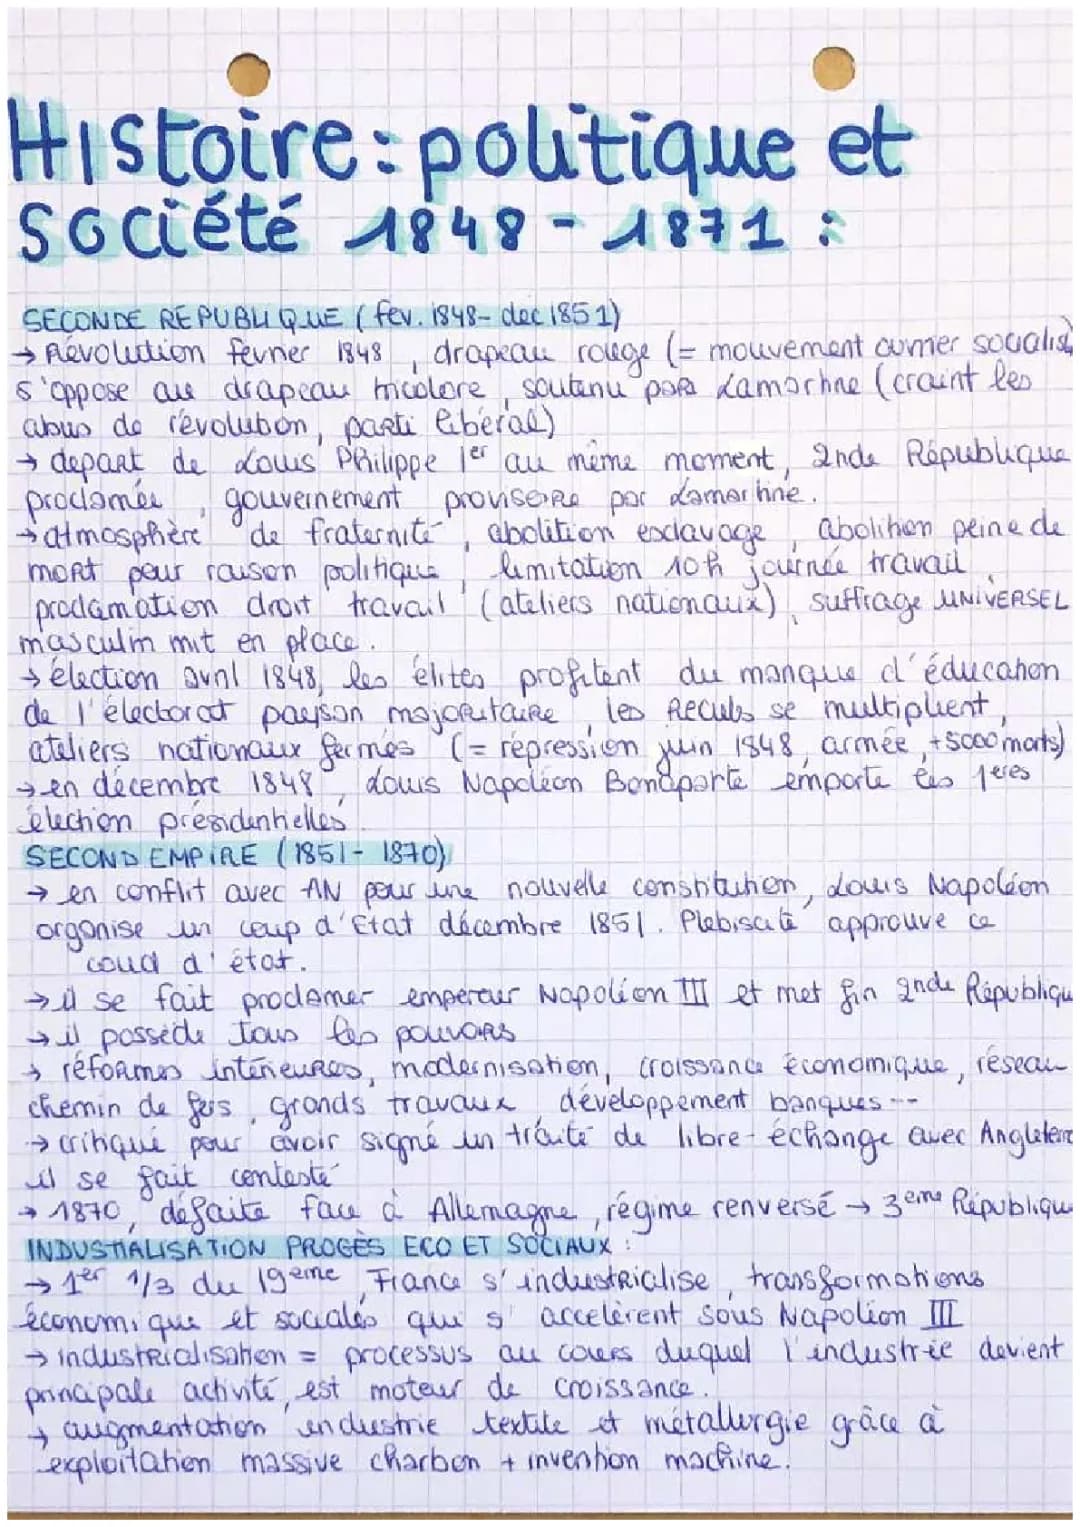 Histoire : politique et
Société 1848 - 1871 :
SECONDE REPUBLIQUE (fev. 1848 - dec 1851)
→ Révolution fevrier 1848, drapeau rouge (= mouvement ouvrier socialis
s'oppose au drapeau tricolore, soutenu par Lamartine (craint les
abus de révolution, parti libéral)
→ depart de Louis Philippe 1er au même moment, 2nde République
proclamée, gouvernement provisoire par Lamartine.
→ atmosphère de fraternité, abolition esclavage, abolition peine de
mort pour raison politique, limitation 10h journée travail,
proclamation droit travail (ateliers nationaux), suffrage UNIVERSEL
masculin mit en place.
→ élection avril 1848, les élites profitent du manque d'éducation
de l'électorat paysan majoritaire, les reculs se multiplient,
ateliers nationaux fermés (= répression juin 1848, armée, +5000 morts)
→ en décembre 1848, Louis Napoléon Bonaparte emporte les 1eres
élection présidentielles.
SECOND EMPIRE (1851 - 1870)
→ en conflit avec AN pour une nouvelle constitution, Louis Napoléon
organise un coup d'Etat décembre 1851. Plebiscite approuve ce
coud d'état.
→ il se fait proclamer empereur Napoléon III et met fin 2nde Républiqu
→ il possède tous les pouvoirs
→ réformes intérieures, modernisation, croissance économique, réseau
chemin de fers, grands travaux, développement banques...
→ critiqué pour avoir signé un traité de libre-échange avec Angleterre
il se fait contesté
→ 1870, défaite face à Allemagne, régime renversé → 3eme Républiqu
INDUSTIALISATION PROGÈS ECO ET SOCIAUX :
→ 1er 1/3 du 19eme, France s'industrialise, transformations
économique et sociales qui s'accelèrent sous Napoléon III
→ industrialisation = processus au cours duquel l'industrie devient
principale activité, est moteur de croissance.
→ augmentation industrie textile et métallurgie grâce à
exploitation massive charbon + invention machine.